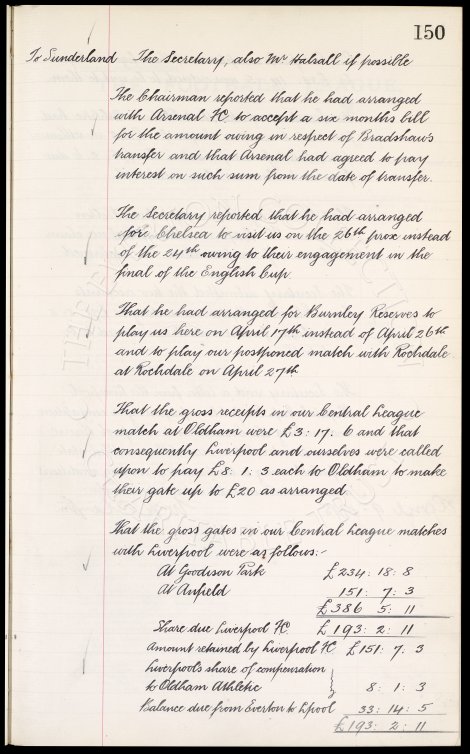 150
To Sunderland The Secretary, also Mr Halsall if possible
The Chairman reported that he had arranged
with Arsenal FC to accept a six months bill
for the amount owing in respect of Bradshaw's
transfer and that Arsenal had agreed to pay
interest on such sum from the date of transfer.
The Secretary reported that he had arranged
for Chelsea to visit us on the 26th prox instead
of the 24th owing to their engagement in the
final of the English Cup.
That he had arranged for Burnley Reserves to
play us here on April 17th instead of April 26th
and to play our postponed match with Rochdale
at Rochdale on April 27th
That the gross receipts in our Central League
match at Oldham were £3: 17: 6 and that
consequently Liverpool and ourselves were called
upon to pay £8: 1: 3 each to Oldham to make
their gate up to £20 as arranged
That the gross gates in our Central League matches
with Liverpool were as follows:-
At Goodison Park £234: 18: 8
At Anfield 151: 7: 3
£386 5: 11
Share due Liverpool FC. £193: 2: 11
Amount retained by Liverpool FC £151: 7: 3
Liverpool's share of compensation
to Oldham Athletic 8: 1: 3
Balance due from Everton to Lpool 33: 14: 5
£193: 2: 11